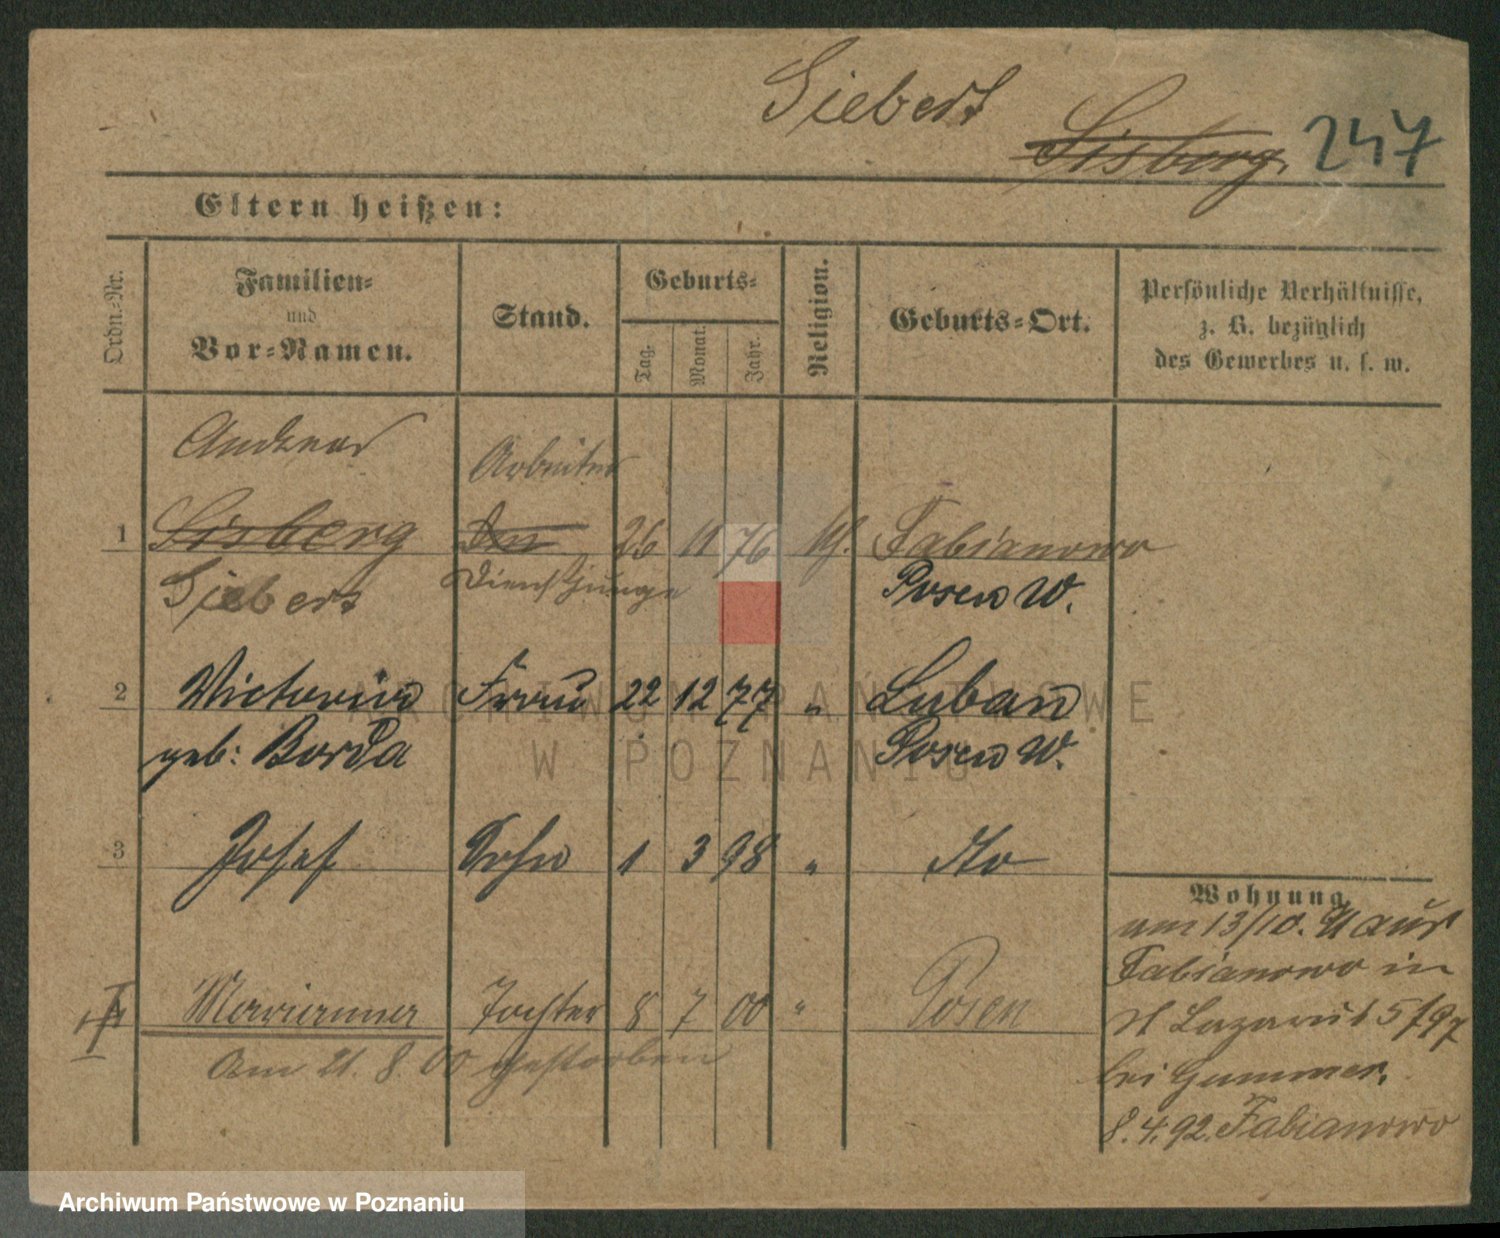 Siebert
Sisberg 247
Eltern heißen:
Ordn.-Nr.
Familien-
und
Vor-Namen.
Stand.
Geburts-
Tag.
Monat.
Jahr.
Religion.
Geburts-Ort.
Persönliche Verhältnisse,
z. B. bezüglich
des Gewerbes u. s. w.
Andreas Arbeiter
1 Sisberg 26 11 76 kth. Fabianowo
Siebert Dienstjunge Posen W.
2 Victoria Frau 22 12 77 " Luban
geb: Borda Posen W.
3 Josef Sohn 1 3 98 "
Wohnung
am 13/10. 91 aus
Fabianowo in
St Lazarus 15/97
bei Gummer.
8.4.92. Fabianowo
4 Marianna Tochter 8 7 00 " Posen
Am 21. 8. 00 gestorben
ARCHIWUM PAŃSTWOWE
W POZNANIU
Archiwum Państwowe w Poznaniu